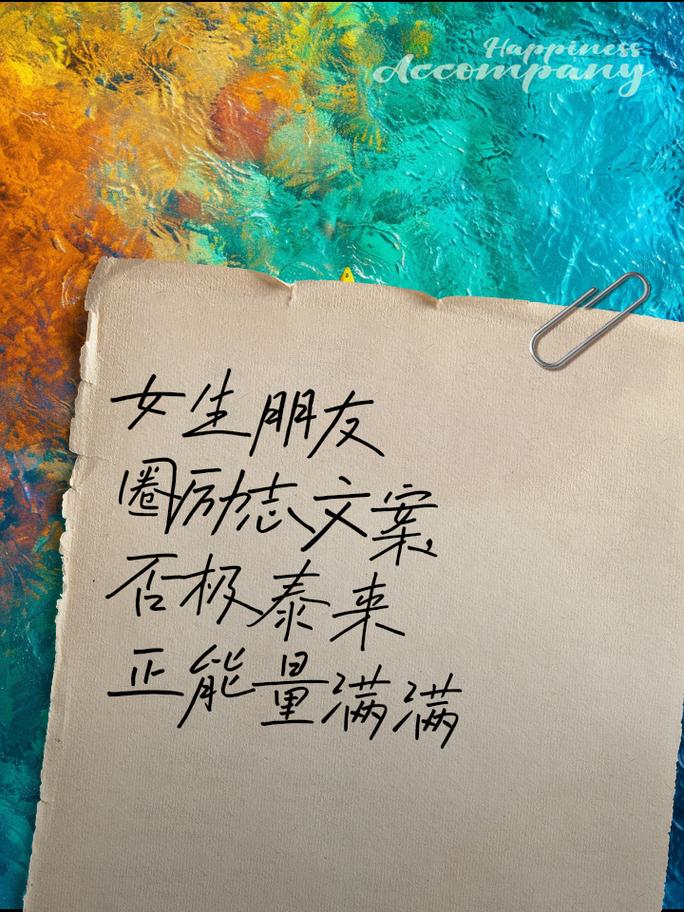 Happiness
Accompany
女生朋友
圈励志文案,
否极泰来
正能量满满